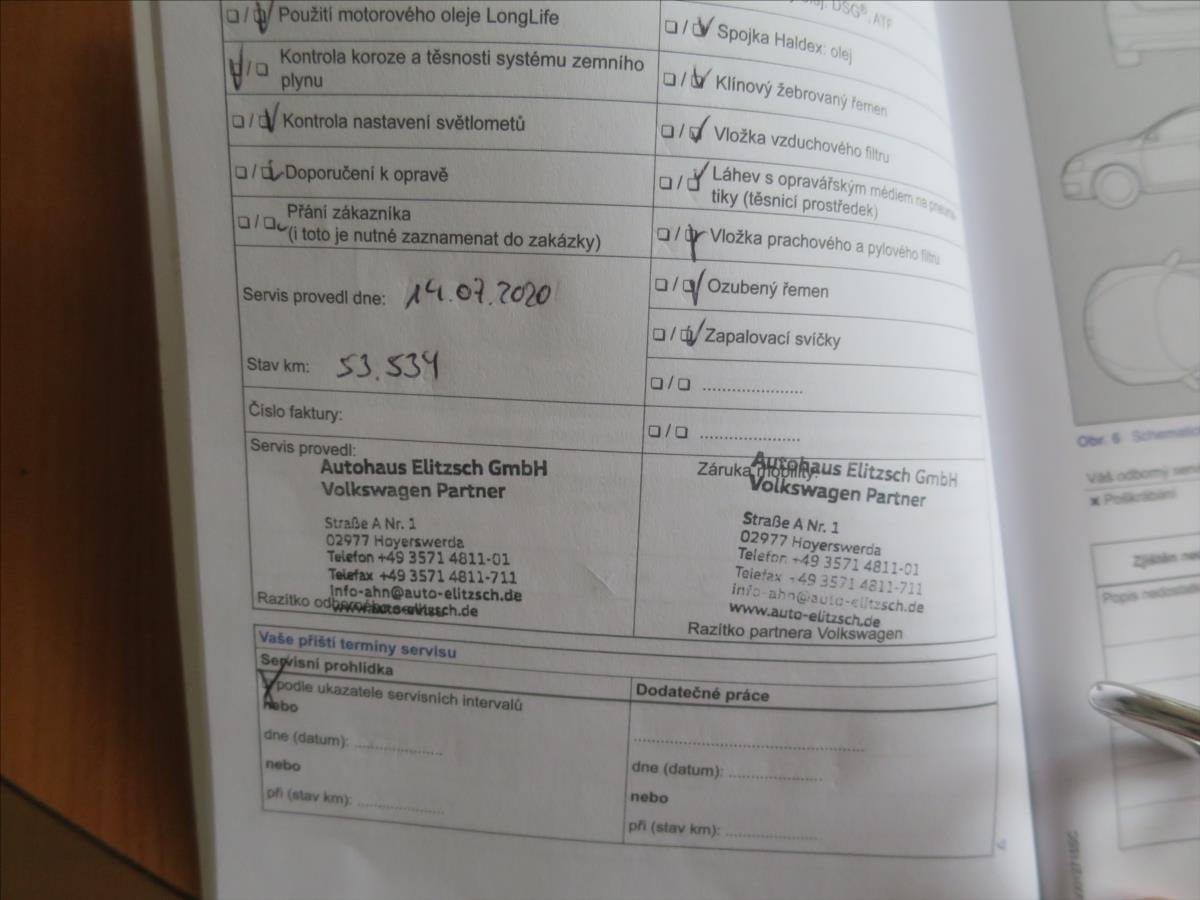 Použití motorového oleje LongLife
Kontrola koroze a těsnosti systému zemního
plynu
Kontrola nastavení světlometů
Doporučení k opravě
Přání zákazníka
(i toto je nutné zaznamenat do zakázky)
Servis provedl dne: 14.07.2020
Stav km: 53.534
Číslo faktury:
Servis provedl:
Autohaus Elitzsch GmbH
Volkswagen Partner
Straße A Nr. 1
02977 Hoyerswerda
Telefon +49 3571 4811-01
Telefax +49 3571 4811-711
info-ahn@auto-elitzsch.de
www.auto-elitzsch.de
Razítko
DSG®, ATF
Spojka Haldex: olej
Klínový žebrovaný řemen
Vložka vzduchového filtru
Láhev s opravářským médiem na
tiky (těsnicí prostředek)
Vložka prachového a pylového filtru
Ozubený řemen
Zapalovací svíčky
....................
....................
Záruka mobility:
Autohaus Elitzsch GmbH
Volkswagen Partner
Straße A Nr. 1
02977 Hoyerswerda
Telefon +49 3571 4811-01
Telefax +49 3571 4811-711
info-ahn@auto-elitzsch.de
www.auto-elitzsch.de
Razítko partnera Volkswagen
Vaše příští termíny servisu
Servisní prohlídka
podle ukazatele servisních intervalů
nebo
dne (datum): ..................
nebo
při (stav km): ..................
Dodatečné práce
................................................
dne (datum): ...................
nebo
při (stav km): ...................
Obr. 6 Schematic
Váš odborný
Poškrábání
Popis